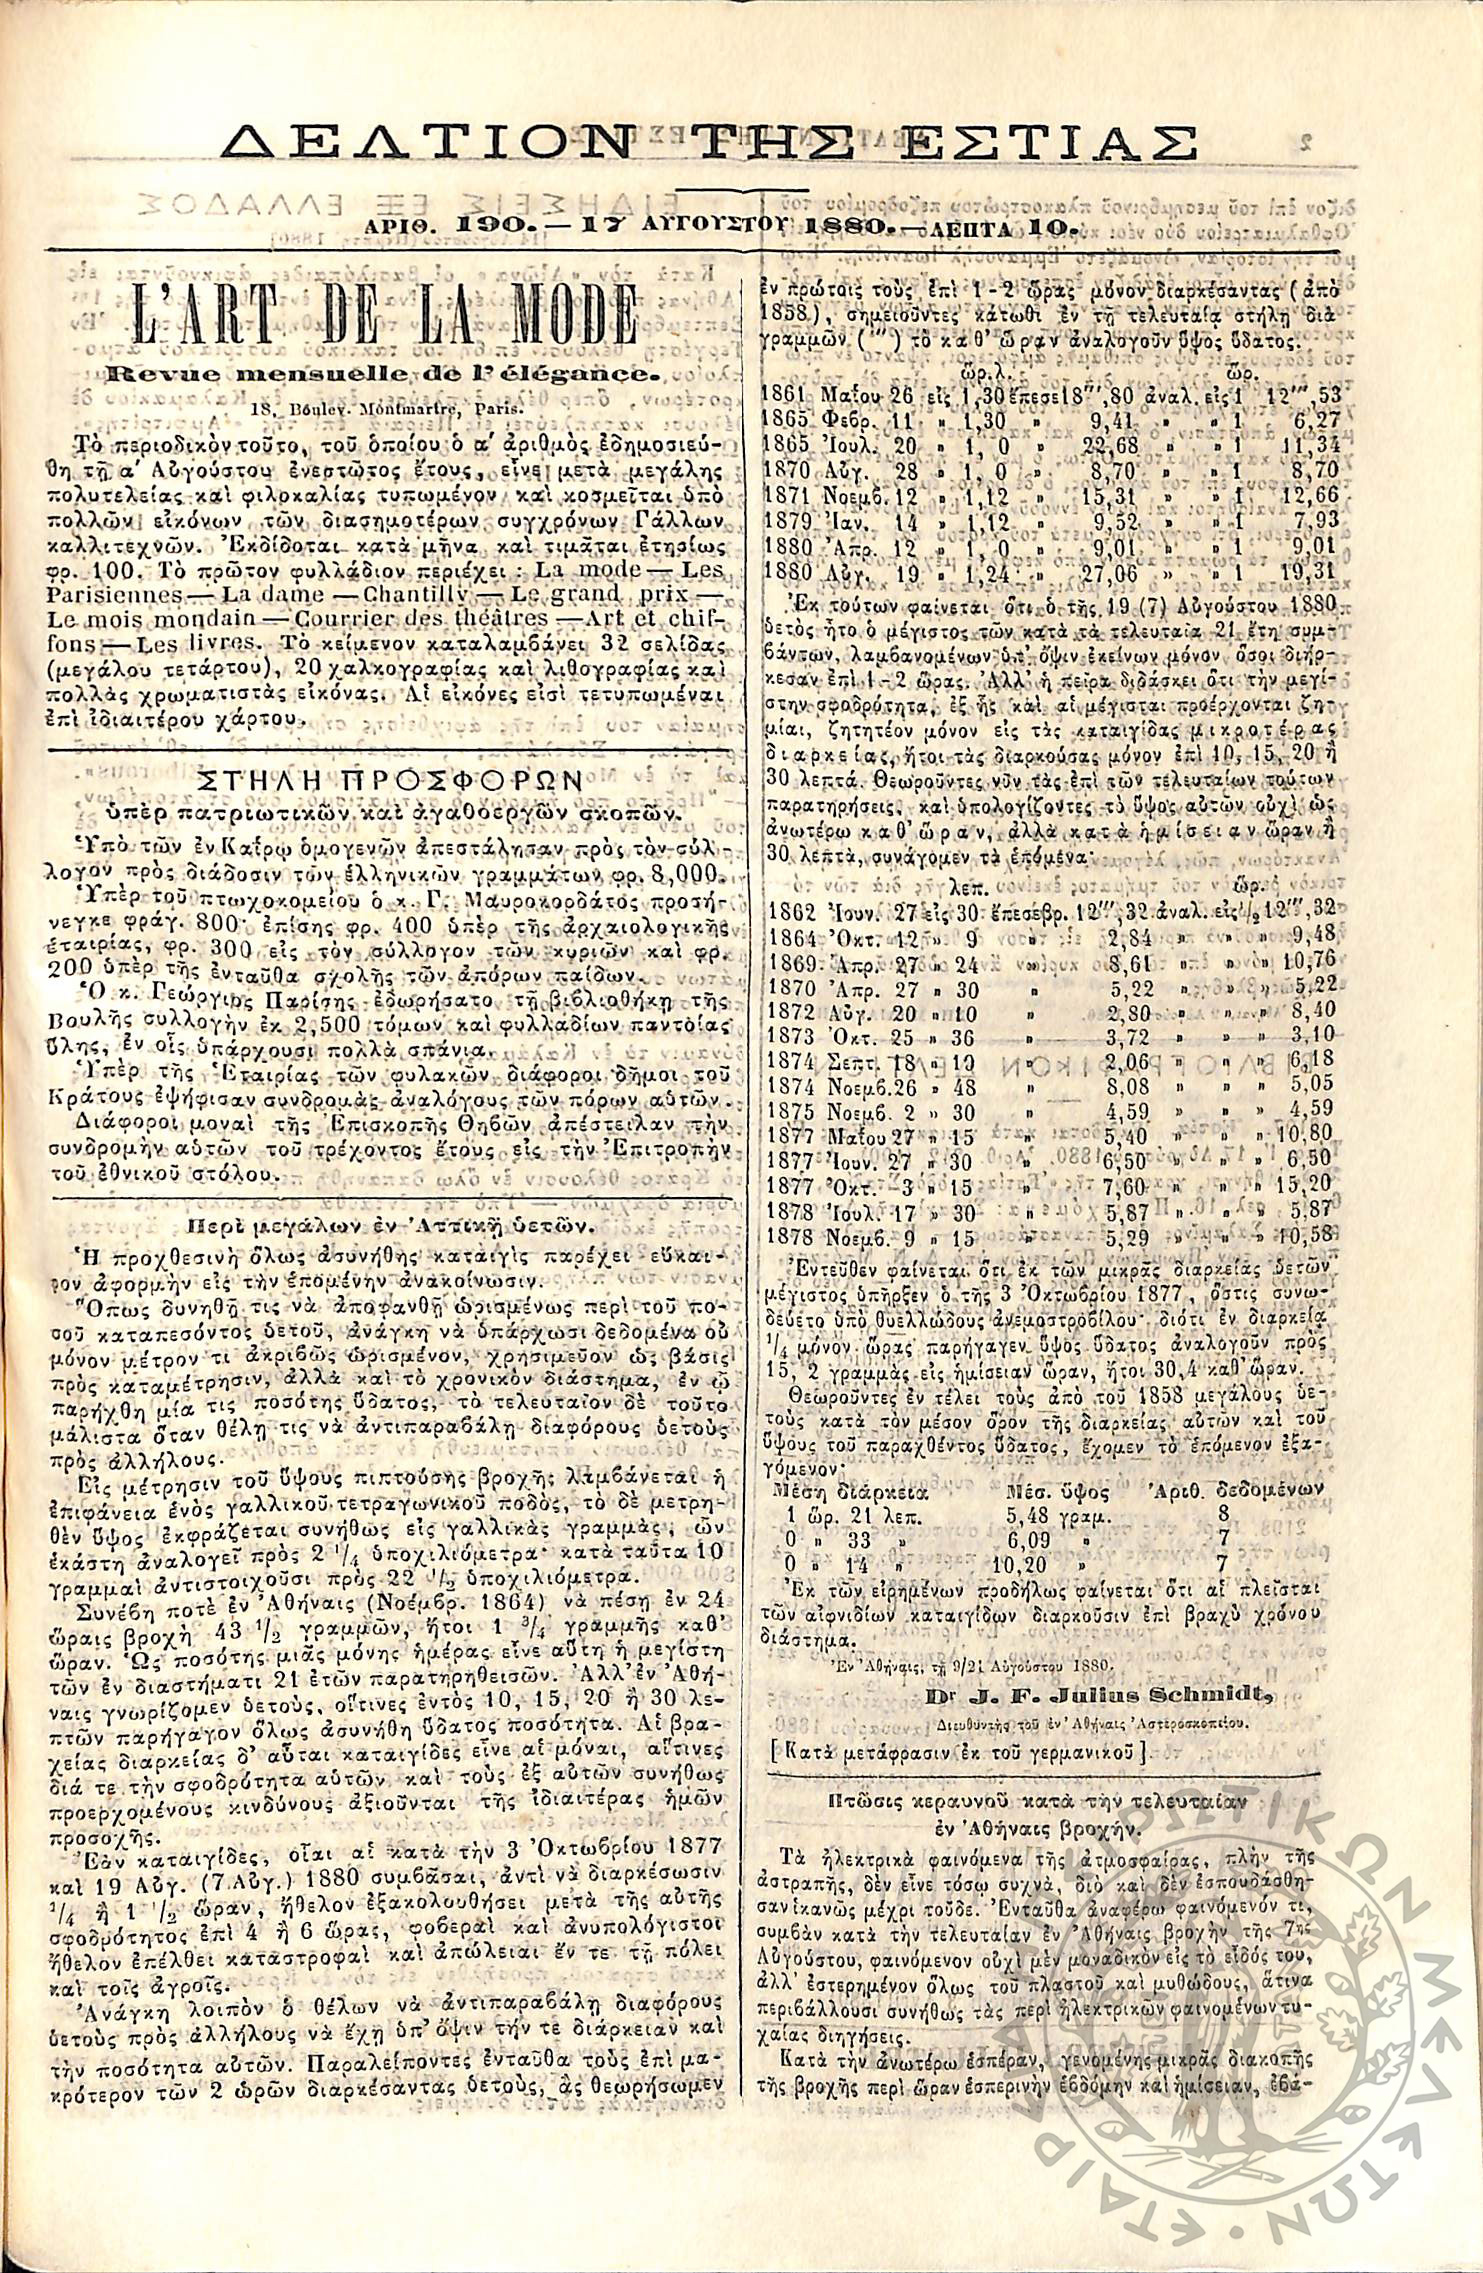 ΔΕΛΤΙΟΝ ΤΗΣ ΕΣΤΙΑΣ
ΑΡΙΘ. 190. — 17 ΑΥΓΟΥΣΤΟΥ 1880. — ΛΕΠΤΑ 10.
L'ART DE LA MODE
Revue mensuelle de l'élégance.
18, Boulev. Montmartre, Paris.
Τὸ περιοδικὸν τοῦτο, τοῦ ὁποίου ὁ α΄ ἀριθμὸς ἐδημοσιεύ-
θη τῇ α΄ Αὐγούστου ἐνεστῶτος ἔτους, εἶνε μετὰ μεγάλης
πολυτελείας καὶ φιλοκαλίας τυπωμένον καὶ κοσμεῖται ὑπὸ
πολλῶν εἰκόνων τῶν διασημοτέρων συγχρόνων Γάλλων
καλλιτεχνῶν. Ἐκδίδοται κατὰ μῆνα καὶ τιμᾶται ἐτησίως
φρ. 100. Τὸ πρῶτον φυλλάδιον περιέχει : La mode — Les
Parisiennes — La dame — Chantilly — Le grand prix —
Le mois mondain — Courrier des théâtres — Art et chif-
fons — Les livres. Τὸ κείμενον καταλαμβάνει 32 σελίδας
(μεγάλου τετάρτου), 20 χαλκογραφίας καὶ λιθογραφίας καὶ
πολλὰς χρωματιστὰς εἰκόνας. Αἱ εἰκόνες εἰσὶ τετυπωμέναι
ἐπὶ ἰδιαιτέρου χάρτου.
ΣΤΗΛΗ ΠΡΟΣΦΟΡΩΝ
ὑπὲρ πατριωτικῶν καὶ ἀγαθοεργῶν σκοπῶν.
Ὑπὸ τῶν ἐν Καΐρῳ ὁμογενῶν ἀπεστάλησαν πρὸς τὸν σύλ-
λογον πρὸς διάδοσιν τῶν ἑλληνικῶν γραμμάτων φρ. 8,000.
Ὑπὲρ τοῦ πτωχοκομείου ὁ κ. Γ. Μαυροκορδάτος προσή-
νεγκε φράγ. 800· ἐπίσης φρ. 400 ὑπὲρ τῆς ἀρχαιολογικῆς
ἑταιρίας, φρ. 300 εἰς τὸν σύλλογον τῶν κυριῶν καὶ φρ.
200 ὑπὲρ τῆς ἐνταῦθα σχολῆς τῶν ἀπόρων παίδων.
Ὁ κ. Γεώργιος Παρίσης ἐδωρήσατο τῇ βιβλιοθήκῃ τῆς
Βουλῆς συλλογὴν ἐκ 2,500 τόμων καὶ φυλλαδίων παντοίας
ὕλης, ἐν οἷς ὑπάρχουσι πολλὰ σπάνια.
Ὑπὲρ τῆς Ἑταιρίας τῶν φυλακῶν διάφοροι δῆμοι τοῦ
Κράτους ἐψήφισαν συνδρομὰς ἀναλόγους τῶν πόρων αὑτῶν.
Διάφοροι μοναὶ τῆς Ἐπισκοπῆς Θηβῶν ἀπέστειλαν τὴν
συνδρομὴν αὑτῶν τοῦ τρέχοντος ἔτους εἰς τὴν Ἐπιτροπὴν
τοῦ ἐθνικοῦ στόλου.
Περὶ μεγάλων ἐν Ἀττικῇ ὑετῶν.
Ἡ προχθεσινὴ ὅλως ἀσυνήθης καταιγὶς παρέχει εὔκαι-
ρον ἀφορμὴν εἰς τὴν ἑπομένην ἀνακοίνωσιν.
Ὅπως δυνηθῇ τις νὰ ἀποφανθῇ ὡρισμένως περὶ τοῦ πο-
σοῦ καταπεσόντος ὑετοῦ, ἀνάγκη νὰ ὑπάρχωσι δεδομένα οὐ
μόνον μέτρον τι ἀκριβῶς ὡρισμένον, χρησιμεῦον ὡς βάσις
πρὸς καταμέτρησιν, ἀλλὰ καὶ τὸ χρονικὸν διάστημα, ἐν ᾧ
παρήχθη μία τις ποσότης ὕδατος, τὸ τελευταῖον δὲ τοῦτο
μάλιστα ὅταν θέλῃ τις νὰ ἀντιπαραβάλῃ διαφόρους ὑετοὺς
πρὸς ἀλλήλους.
Εἰς μέτρησιν τοῦ ὕψους πιπτούσης βροχῆς λαμβάνεται ἡ
ἐπιφάνεια ἑνὸς γαλλικοῦ τετραγωνικοῦ ποδὸς, τὸ δὲ μετρη-
θὲν ὕψος ἐκφράζεται συνήθως εἰς γαλλικὰς γραμμὰς, ὧν
ἑκάστη ἀναλογεῖ πρὸς 2 1/4 ὑποχιλιόμετρα· κατὰ ταῦτα 10
γραμμαὶ ἀντιστοιχοῦσι πρὸς 22 1/2 ὑποχιλιόμετρα.
Συνέβη ποτὲ ἐν Ἀθήναις (Νοέμβρ. 1864) νὰ πέσῃ ἐν 24
ὥραις βροχὴ 43 1/2 γραμμῶν, ἤτοι 1 3/4 γραμμῆς καθ'
ὥραν. Ὡς ποσότης μιᾶς μόνης ἡμέρας εἶνε αὕτη ἡ μεγίστη
τῶν ἐν διαστήματι 21 ἐτῶν παρατηρηθεισῶν. Ἀλλ' ἐν Ἀθή-
ναις γνωρίζομεν ὑετοὺς, οἵτινες ἐντὸς 10, 15, 20 ἢ 30 λε-
πτῶν παρήγαγον ὅλως ἀσυνήθη ὕδατος ποσότητα. Αἱ βρα-
χείας διαρκείας δ' αὗται καταιγίδες εἶνε αἱ μόναι, αἵτινες
διά τε τὴν σφοδρότητα αὑτῶν καὶ τοὺς ἐξ αὐτῶν συνήθως
προερχομένους κινδύνους ἀξιοῦνται τῆς ἰδιαιτέρας ἡμῶν
προσοχῆς.
Ἐὰν καταιγίδες, οἷαι αἱ κατὰ τὴν 3 Ὀκτωβρίου 1877
καὶ 19 Αὐγ. (7 Αὐγ.) 1880 συμβᾶσαι, ἀντὶ νὰ διαρκέσωσιν
1/4 ἢ 1 1/2 ὥραν, ἤθελον ἐξακολουθήσει μετὰ τῆς αὐτῆς
σφοδρότητος ἐπὶ 4 ἢ 6 ὥρας, φοβεραὶ καὶ ἀνυπολόγιστοι
ἤθελον ἐπέλθει καταστροφαὶ καὶ ἀπώλειαι ἔν τε τῇ πόλει
καὶ τοῖς ἀγροῖς.
Ἀνάγκη λοιπὸν ὁ θέλων νὰ ἀντιπαραβάλῃ διαφόρους
ὑετοὺς πρὸς ἀλλήλους νὰ ἔχῃ ὑπ' ὄψιν τήν τε διάρκειαν καὶ
τὴν ποσότητα αὐτῶν. Παραλείποντες ἐνταῦθα τοὺς ἐπὶ μα-
κρότερον τῶν 2 ὡρῶν διαρκέσαντας ὑετοὺς, ἂς θεωρήσωμεν
ἐν πρώτοις τοὺς ἐπὶ 1 - 2 ὥρας μόνον διαρκέσαντας (ἀπὸ
1858), σημειοῦντες κάτωθι ἐν τῇ τελευταίᾳ στήλῃ διὰ
γραμμῶν (''') τὸ καθ' ὥραν ἀναλογοῦν ὕψος ὕδατος.
ὥρ. λ. ὥρ.
1861 Μαΐου 26 εἰς 1,30 ἔπεσε 18''',80 ἀναλ. εἰς 1 12''',53
1865 Φεβρ. 11 » 1,30 » 9,41 » » 1 6,27
1865 Ἰουλ. 20 » 1, 0 » 22,68 » » 1 11,34
1870 Αὐγ. 28 » 1, 0 » 8,70 » » 1 8,70
1871 Νοεμβ. 12 » 1,12 » 15,31 » » 1 12,66
1879 Ἰαν. 14 » 1,12 » 9,52 » » 1 7,93
1880 Ἀπρ. 12 » 1, 0 » 9,01 » » 1 9,01
1880 Αὐγ. 19 » 1,24 » 27,06 » » 1 19,31
Ἐκ τούτων φαίνεται ὅτι ὁ τῆς 19 (7) Αὐγούστου 1880
ὑετὸς ἦτο ὁ μέγιστος τῶν κατὰ τὰ τελευταῖα 21 ἔτη συμ-
βάντων, λαμβανομένων ὑπ' ὄψιν ἐκείνων μόνον ὅσοι διήρ-
κεσαν ἐπὶ 1 - 2 ὥρας. Ἀλλ' ἡ πεῖρα διδάσκει ὅτι τὴν μεγί-
στην σφοδρότητα, ἐξ ἧς καὶ αἱ μέγισται προέρχονται ζη-
μίαι, ζητητέον μόνον εἰς τὰς καταιγίδας μικροτέρας
διαρκείας, ἤτοι τὰς διαρκούσας μόνον ἐπὶ 10, 15, 20 ἢ
30 λεπτά. Θεωροῦντες νῦν τὰς ἐπὶ τῶν τελευταίων τούτων
παρατηρήσεις, καὶ ὑπολογίζοντες τὸ ὕψος αὐτῶν οὐχὶ ὡς
ἀνωτέρω καθ' ὥραν, ἀλλὰ κατὰ ἡμίσειαν ὥραν ἢ
30 λεπτὰ, συνάγομεν τὰ ἑπόμενα·
λεπ. ὥρ.
1862 Ἰουν. 27 εἰς 30 ἔπεσε βρ. 12''',32 ἀναλ. εἰς 1/2 12''',32
1864 Ὀκτ. 12 » 9 » 2,84 » » » 9,48
1869 Ἀπρ. 27 » 24 » 8,61 » » » 10,76
1870 Ἀπρ. 27 » 30 » 5,22 » » » 5,22
1872 Αὐγ. 20 » 10 » 2,80 » » » 8,40
1873 Ὀκτ. 25 » 36 » 3,72 » » » 3,10
1874 Σεπτ. 18 » 10 » 2,06 » » » 6,18
1874 Νοεμβ. 26 » 48 » 8,08 » » » 5,05
1875 Νοεμβ. 2 » 30 » 4,59 » » » 4,59
1877 Μαΐου 27 » 15 » 5,40 » » » 10,80
1877 Ἰουν. 27 » 30 » 6,50 » » » 6,50
1877 Ὀκτ. 3 » 15 » 7,60 » » » 15,20
1878 Ἰουλ. 17 » 30 » 5,87 » » » 5,87
1878 Νοεμβ. 9 » 15 » 5,29 » » » 10,58
Ἐντεῦθεν φαίνεται ὅτι ἐκ τῶν μικρᾶς διαρκείας ὑετῶν
μέγιστος ὑπῆρξεν ὁ τῆς 3 Ὀκτωβρίου 1877, ὅστις συνω-
δεύετο ὑπὸ θυελλώδους ἀνεμοστροβίλου· διότι ἐν διαρκείᾳ
1/4 μόνον ὥρας παρήγαγεν ὕψος ὕδατος ἀναλογοῦν πρὸς
15, 2 γραμμὰς εἰς ἡμίσειαν ὥραν, ἤτοι 30,4 καθ' ὥραν.
Θεωροῦντες ἐν τέλει τοὺς ἀπὸ τοῦ 1858 μεγάλους ὑε-
τοὺς κατὰ τὸν μέσον ὅρον τῆς διαρκείας αὐτῶν καὶ τοῦ
ὕψους τοῦ παραχθέντος ὕδατος, ἔχομεν τὸ ἑπόμενον ἐξα-
γόμενον·
Μέση διάρκεια Μέσ. ὕψος Ἀριθ. δεδομένων
1 ὥρ. 21 λεπ. 5,48 γραμ. 8
0 » 33 » 6,09 » 7
0 » 14 » 10,20 » 7
Ἐκ τῶν εἰρημένων προδήλως φαίνεται ὅτι αἱ πλεῖσται
τῶν αἰφνιδίων καταιγίδων διαρκοῦσιν ἐπὶ βραχὺ χρόνου
διάστημα.
Ἐν Ἀθήναις, τῇ 9/21 Αὐγούστου 1880.
Dr J. F. Julius Schmidt,
Διευθυντὴς τοῦ ἐν Ἀθήναις Ἀστεροσκοπείου.
[Κατὰ μετάφρασιν ἐκ τοῦ γερμανικοῦ].
Πτῶσις κεραυνοῦ κατὰ τὴν τελευταίαν
ἐν Ἀθήναις βροχήν.
Τὰ ἠλεκτρικὰ φαινόμενα τῆς ἀτμοσφαίρας, πλὴν τῆς
ἀστραπῆς, δὲν εἶνε τόσῳ συχνὰ, διὸ καὶ δὲν ἐσπουδάσθη-
σαν ἱκανῶς μέχρι τοῦδε. Ἐνταῦθα ἀναφέρω φαινόμενόν τι,
συμβὰν κατὰ τὴν τελευταίαν ἐν Ἀθήναις βροχὴν τῆς 7ης
Αὐγούστου, φαινόμενον οὐχὶ μὲν μοναδικὸν εἰς τὸ εἶδός του,
ἀλλ' ἐστερημένον ὅλως τοῦ πλαστοῦ καὶ μυθώδους, ἅτινα
περιβάλλουσι συνήθως τὰς περὶ ἠλεκτρικῶν φαινομένων τυ-
χαίας διηγήσεις.
Κατὰ τὴν ἀνωτέρω ἑσπέραν, γενομένης μικρᾶς διακοπῆς
τῆς βροχῆς περὶ ὥραν ἑσπερινὴν ἑβδόμην καὶ ἡμίσειαν, ἐβά-
ΕΤΑΙΡΙΑ ΜΙΚΡΑΣΙΑΤΙΚΩΝ ΜΕΛΕΤΩΝ